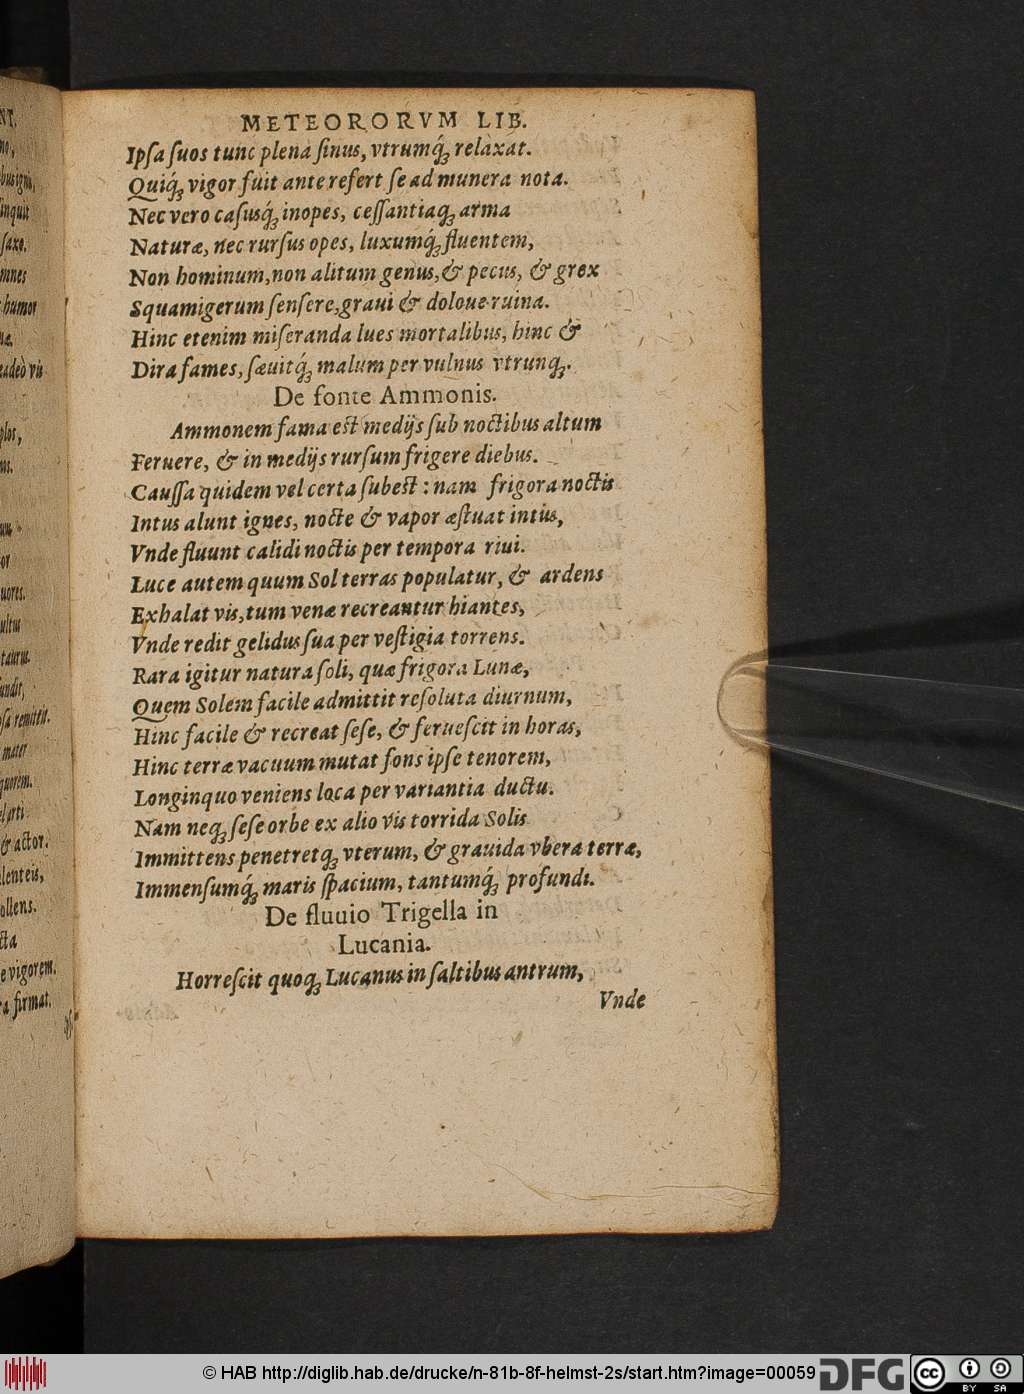 METEORORVM LIB.
Ipſa ſuos tunc plena ſinus, vtrumq́ꝫ relaxat.
Quiq́ꝫ vigor fuit ante refert ſe ad munera nota.
Nec vero caſusq́ꝫ inopes, ceſſantiaqꝫ arma
Naturæ, nec rurſus opes, luxumq́ꝫ fluentem,
Non hominum, non alitum genus, & pecus, & grex
Squamigerum ſenſere, graui & doloue ruina.
Hinc etenim miſeranda lues mortalibus, hinc &
Dira fames, ſæuitq́ꝫ malum per vulnus vtrunqꝫ.
De fonte Ammonis.
Ammonem fama est medijs ſub noctibus altum
Feruere, & in medijs rurſum frigere diebus.
Cauſſa quidem vel certa ſubest: nam frigora noctis
Intus alunt ignes, nocte & vapor æstuat intùs,
Vnde fluunt calidi noctis per tempora riui.
Luce autem quum Sol terras populatur, & ardens
Exhalat vis, tum venæ recreantur hiantes,
Vnde redit gelidus ſua per veſtigia torrens.
Rara igitur natura ſoli, quæ frigora Lunæ,
Quem Solem facile admittit reſoluta diurnum,
Hinc facile & recreat ſeſe, & ferueſcit in horas,
Hinc terræ vacuum mutat fons ipſe tenorem,
Longinquo veniens loca per variantia ductu.
Nam neqꝫ ſeſe orbe ex alio vis torrida Solis
Immittens penetretqꝫ vterum, & grauida vbera terræ,
Immenſumq́ꝫ maris ſpacium, tantumq́ꝫ profundi.
De fluuio Trigella in
Lucania.
Horreſcit quoqꝫ Lucanus in ſaltibus antrum,
Vnde
© HAB http://diglib.hab.de/drucke/n-81b-8f-helmst-2s/start.htm?image=00059
DFG
cc
BY SA